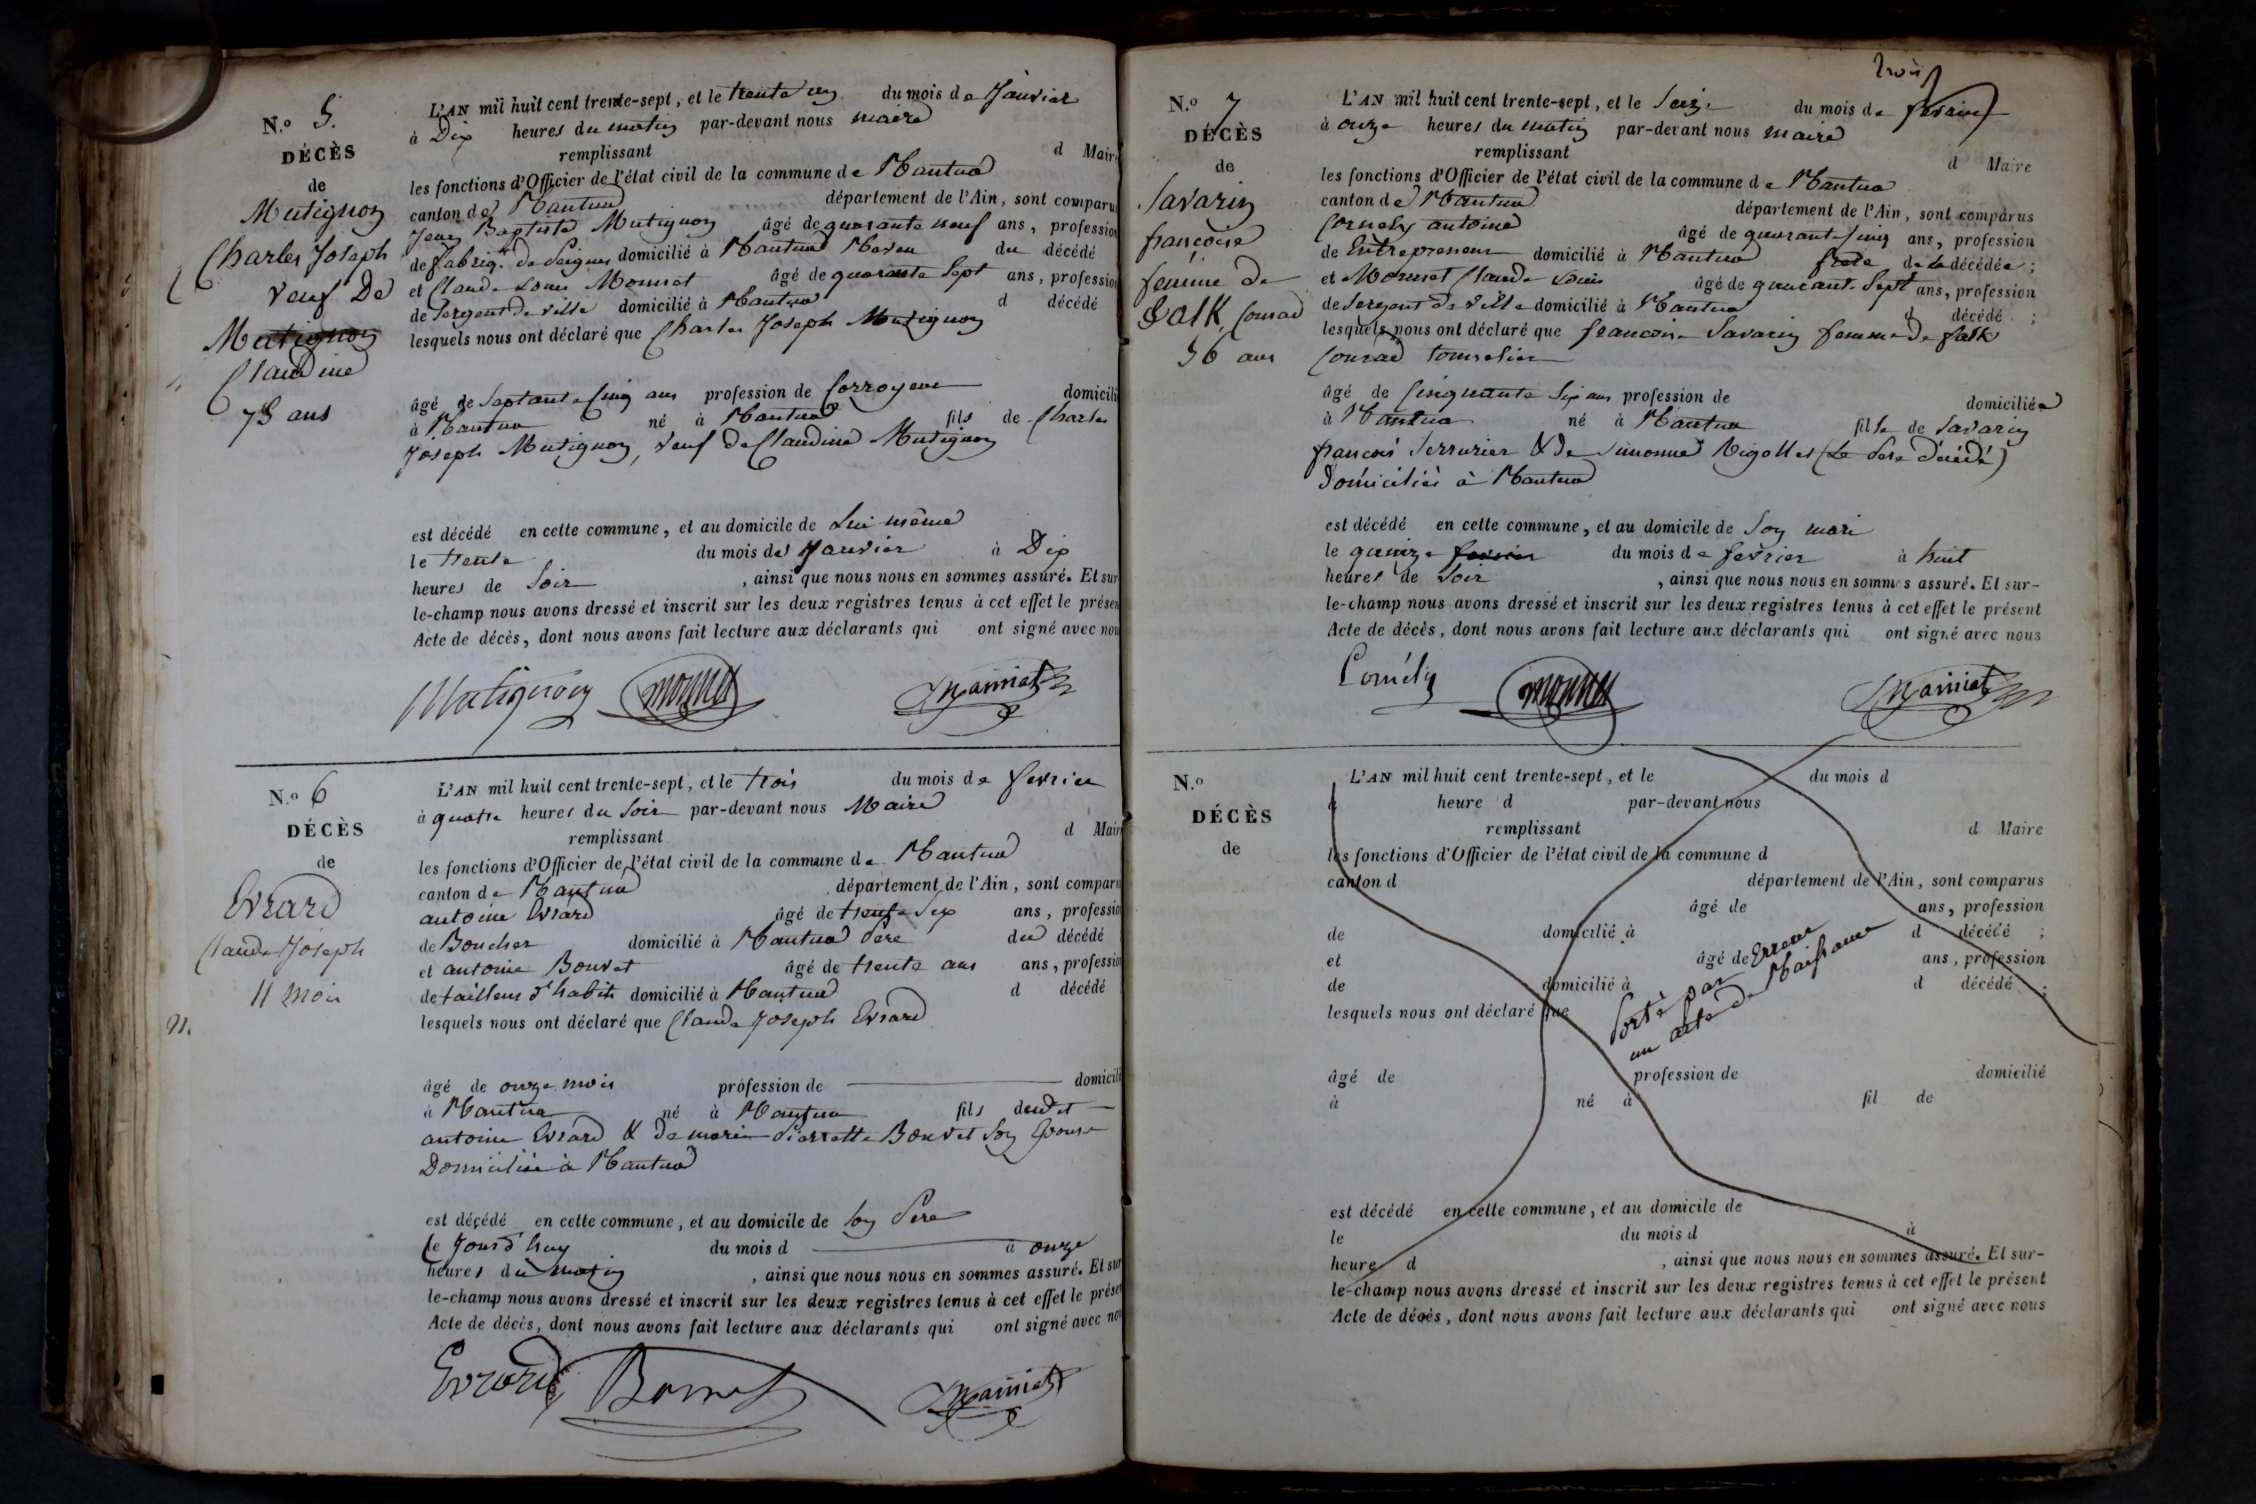 N.° 5.
DÉCÈS
de
Mutignon
Charles Joseph
veuf De
Mutignon
Claudine
75 ans
L'AN mil huit cent trente-sept, et le trente un du mois de Janvier
à Dix heures du matin par-devant nous maire
remplissant d Maire
les fonctions d'Officier de l'état civil de la commune de Nantua
canton de Nantua département de l'Ain, sont comparus
Jean Baptiste Mutignon âgé de quarante neuf ans, profession
de fabriq.t de Peignes domicilié à Nantua Neveu du décédé
et Claude Louis Monnet âgé de quarante sept ans, profession
de Sergent de ville domicilié à Nantua d décédé
lesquels nous ont déclaré que Charles Joseph Mutignon
âgé de Septante Cinq ans profession de Corroyeur domicilié
à Nantua né à Nantua fils de Charles
Joseph Mutignon, veuf de Claudine Mutignon
est décédé en cette commune, et au domicile de Lui même
le trente du mois de Janvier à Dix
heures de Soir , ainsi que nous nous en sommes assuré. Et sur
le-champ nous avons dressé et inscrit sur les deux registres tenus à cet effet le présen
Acte de décès, dont nous avons fait lecture aux déclarants qui ont signé avec nou
Mutignon Monnet
N.° 6
DÉCÈS
de
Evrard
Claude Joseph
11 mois
n.
L'AN mil huit cent trente-sept, et le trois du mois de fevrier
à quatre heures du Soir par-devant nous Maire
remplissant d Mair
les fonctions d'Officier de l'état civil de la commune de Nantua
canton de Nantua département de l'Ain, sont comparu
antoine Evrard âgé de trente Six ans, profession
de Boucher domicilié à Nantua Père du décédé
et antoine Bouvet âgé de trente ans ans, profession
de tailleur d'habits domicilié à Nantua d décédé
lesquels nous ont déclaré que Claude Joseph Evrard
âgé de onze mois profession de domicilié
à Nantua né à Nantua fils dudit
antoine Evrard & de marie Pierrette Bouvet Son Epouse
Domiciliés à Nantua
est décédé en cette commune, et au domicile de Son Père
le Jourd'huy du mois d à onze
heures du matin , ainsi que nous nous en sommes assuré. Et sur
le-champ nous avons dressé et inscrit sur les deux registres tenus à cet effet le présen
Acte de décès, dont nous avons fait lecture aux déclarants qui ont signé avec nou
Evrard
trois
N.° 7
DÉCÈS
de
Savarin
françoise
femme de
Falk Conrad
56 ans
L'AN mil huit cent trente-sept, et le Seize du mois de fevrier
à onze heures du matin par-devant nous maire
remplissant d Maire
les fonctions d'Officier de l'état civil de la commune de Nantua
canton de Nantua département de l'Ain, sont comparus
Cornely antoine âgé de quarante Cinq ans, profession
de Entrepreneur domicilié à Nantua de la décédée ;
et Monnet Claude Louis âgé de quarante Sept ans, profession
de Sergent de Ville domicilié à Nantua d décédé ;
lesquels nous ont déclaré que françoise Savarin femme de falk
Conrad tonnelier
âgé de Cinquante Six ans profession de domiciliée
à Nantua né à Nantua fille de Savarin
françois Serrurier & de Simonne Rigollet (Le Père Décédé)
Domiciliés à Nantua
est décédé en cette commune, et au domicile de Son mari
le quinze fevrier du mois de fevrier à huit
heures de Soir , ainsi que nous nous en sommes assuré. Et sur-
le-champ nous avons dressé et inscrit sur les deux registres tenus à cet effet le présent
Acte de décès, dont nous avons fait lecture aux déclarants qui ont signé avec nous
Cornély Monnet
N.°
DÉCÈS
de
L'AN mil huit cent trente-sept, et le du mois d
à heure d par-devant nous
remplissant d Maire
les fonctions d'Officier de l'état civil de la commune d
canton d département de l'Ain, sont comparus
âgé de ans, profession
de domicilié à d décédé ;
et âgé de ans, profession
de domicilié à d décédé ;
lesquels nous ont déclaré que
Porté par Erreur
un acte de Naissance
âgé de profession de domicilié
à né à fil de
est décédé en cette commune, et au domicile de
le du mois d à
heure d , ainsi que nous nous en sommes assuré. Et sur-
le-champ nous avons dressé et inscrit sur les deux registres tenus à cet effet le présent
Acte de décès, dont nous avons fait lecture aux déclarants qui ont signé avec nous